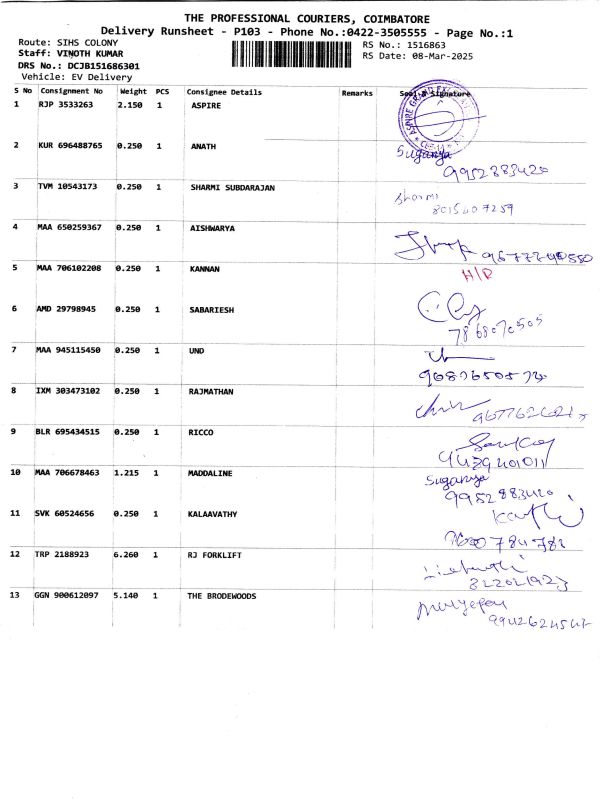 THE PROFESSIONAL COURIERS, COIMBATORE
Delivery Runsheet - P103 - Phone No.:0422-3505555 - Page No.:1
Route: SIHS COLONY
Staff: VINOTH KUMAR
DRS No.: DCJB151686301
Vehicle: EV Delivery
RS No.: 1516863
RS Date: 08-Mar-2025
S No Consignment No Weight PCS Consignee Details Remarks Seal & Signature
1 RJP 3533263 2.150 1 ASPIRE
2 KUR 696488765 0.250 1 ANATH Suganya
9952883420
3 TVM 10543173 0.250 1 SHARMI SUBDARAJAN Sharmi
8015407259
4 MAA 650259367 0.250 1 AISHWARYA
5 MAA 706102208 0.250 1 KANNAN H/R
6 AMD 29798945 0.250 1 SABARIESH
7868070505
7 MAA 945115450 0.250 1 UND
8 IXM 303473102 0.250 1 RAJMATHAN
9 BLR 695434515 0.250 1 RICCO
10 MAA 706678463 1.215 1 MADDALINE Suganya
9952883420
11 SVK 60524656 0.250 1 KALAAVATHY
12 TRP 2188923 6.260 1 RJ FORKLIFT
13 GGN 900612097 5.140 1 THE BRODEWOODS